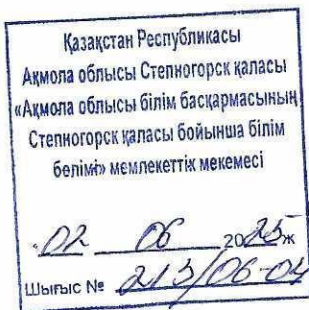 Қазақстан Республикасы
Ақмола облысы Степногорск қаласы
«Ақмола облысы білім басқармасының
Степногорск қаласы бойынша білім
бөлімі» мемлекеттік мекемесі
02 06 2025ж
Шығыс № 213/06-04